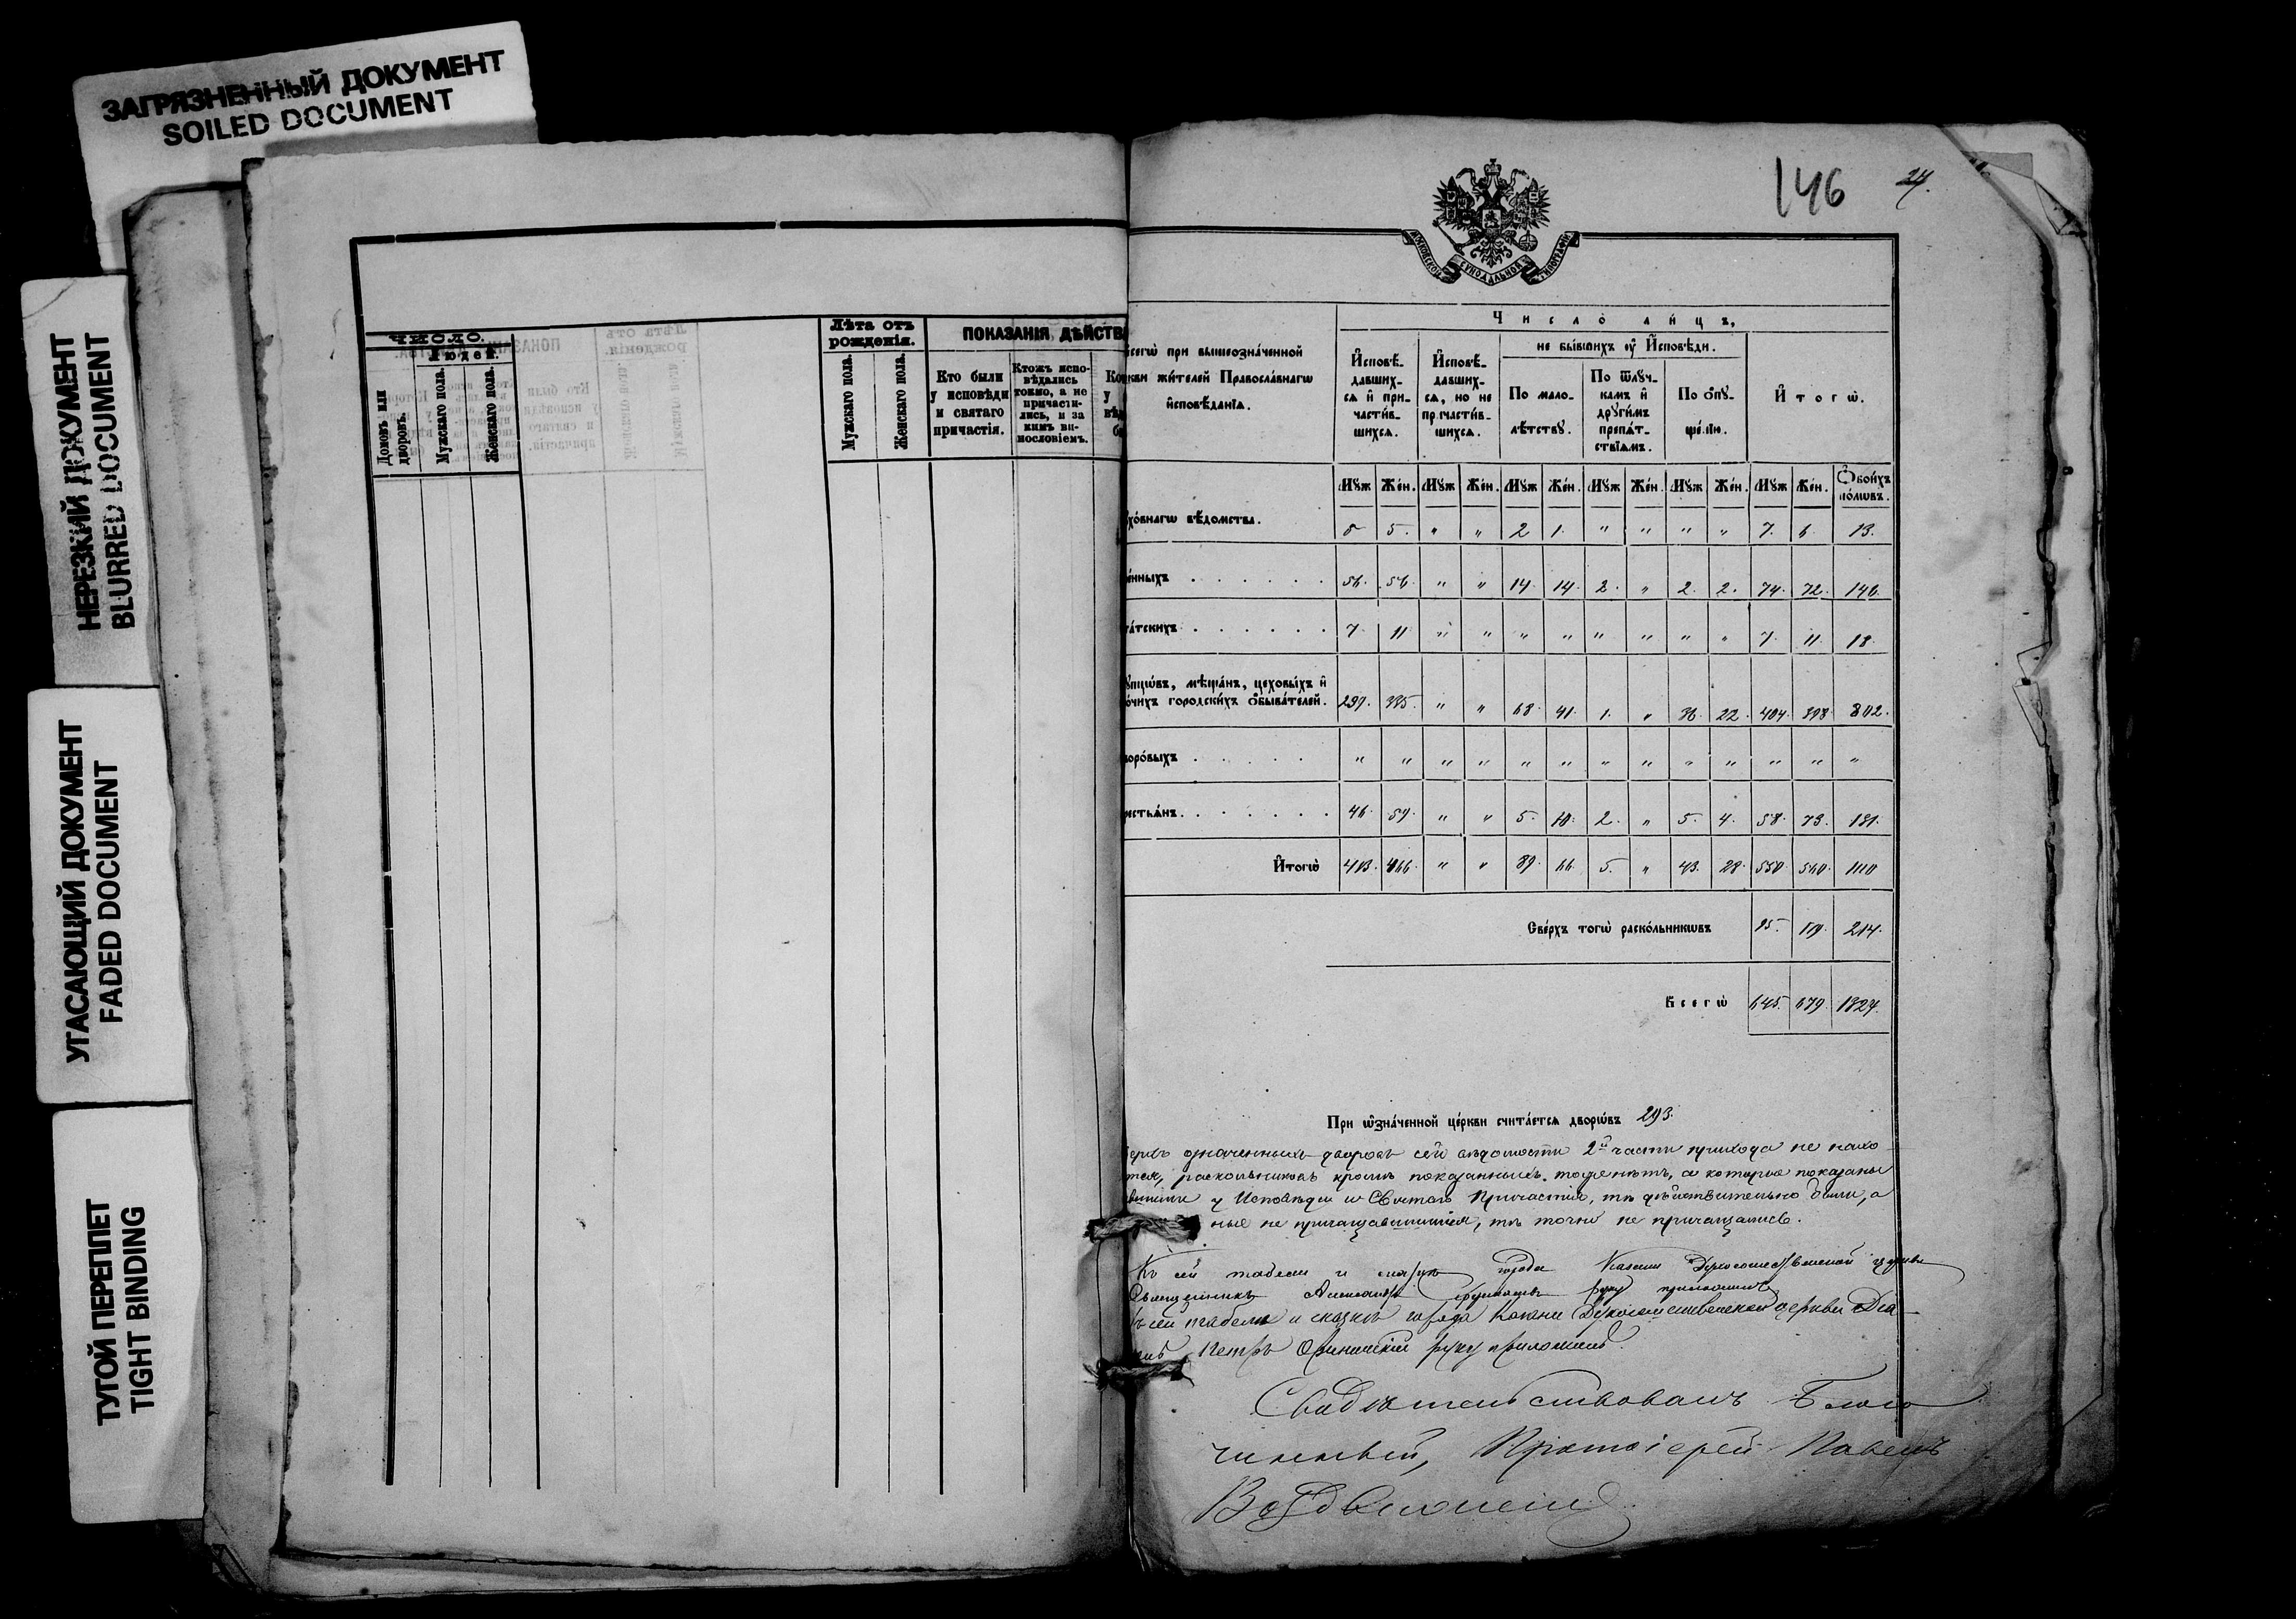 ЗАГРЯЗНЕННЫЙ ДОКУМЕНТ
SOILED DOCUMENT
НЕРЕЗКИЙ ДОКУМЕНТ
BLURRED DOCUMENT
УГАСАЮЩИЙ ДОКУМЕНТ
FADED DOCUMENT
ТУГОЙ ПЕРЕПЛЕТ
TIGHT BINDING
ЧИСЛО.
Людей.
Домовъ или дворовъ.
Мужскаго пола.
Женскаго пола.
Лѣта отъ рожденія.
Мужскаго пола.
Женскаго пола.
ПОКАЗАНІЯ ДѢЙСТВ
Кто были у исповѣди и святаго причастія.
Ктожъ исповѣдались токмо, а не причастились, и за кимъ винословіемъ.
146
27.
МОСКОВСКОЙ СѴНОДАЛЬНОЙ ТИПОГРАФІИ
при вышеозначенной
жителей Православнагѡ
исповѣданїѧ.
Число лицъ,
Исповѣдавшихсѧ и причастившихсѧ.
Исповѣдавшихсѧ, но не причастившихсѧ.
не бывшихъ ѹ Исповѣди.
По малолѣтству.
По ѿлучкамъ и другимъ препѧтствїѧмъ.
По ѡпущенїю.
Итогѡ.
Муж Жен. Муж Жен. Муж Жен. Муж Жен. Муж Жен. Муж Жен. Обоихъ половъ.
вѣдомства. 5 5. " " 2 1. " " " " 7. 6. 13.
енныхъ 56. 56. " " 14. 14. 2. " 2. 2. 74. 72. 146.
атскихъ 7. 11 " " " " " " " " 7. 11. 18.
упцѡвъ, мѣщанъ, цеховыхъ и
очихъ городскихъ ѡбывателей. 299. 335. " " 68. 41. 1. " 36. 22. 404. 398. 802.
оровыхъ " " " " " " " " " " " " "
естьѧнъ 46. 59. " " 5. 10. 2. " 5. 4. 58. 73. 131.
Итогѡ 413. 466. " " 89. 66. 5. " 43. 28. 550. 560. 1110
Сверхъ тогѡ раскольникѡвъ 95. 119. 214.
Всегѡ 645. 679. 1324.
При ѡзначенной церкви считаетсѧ дворѡвъ 293.
означенныхъ дворовъ сей вѣдомости 2й части прихода не нахо
раскольниковъ кромѣ показанныхъ тоже нѣтъ, а которые показаны
у Исповѣди и Святаго Причастія, тѣ дѣйствительно были, а
ные не причащавшимися, тѣ точно не причащались.
Къ сей табели и сказкѣ города Казани Духосошественской церкви
Священникъ Александръ руку приложилъ
сей табели и сказкѣ города Казани Духосошественской церкви Діа-
Петръ руку приложилъ.
Свидѣтельствовалъ Благо
чинный, Протоіерей Павелъ